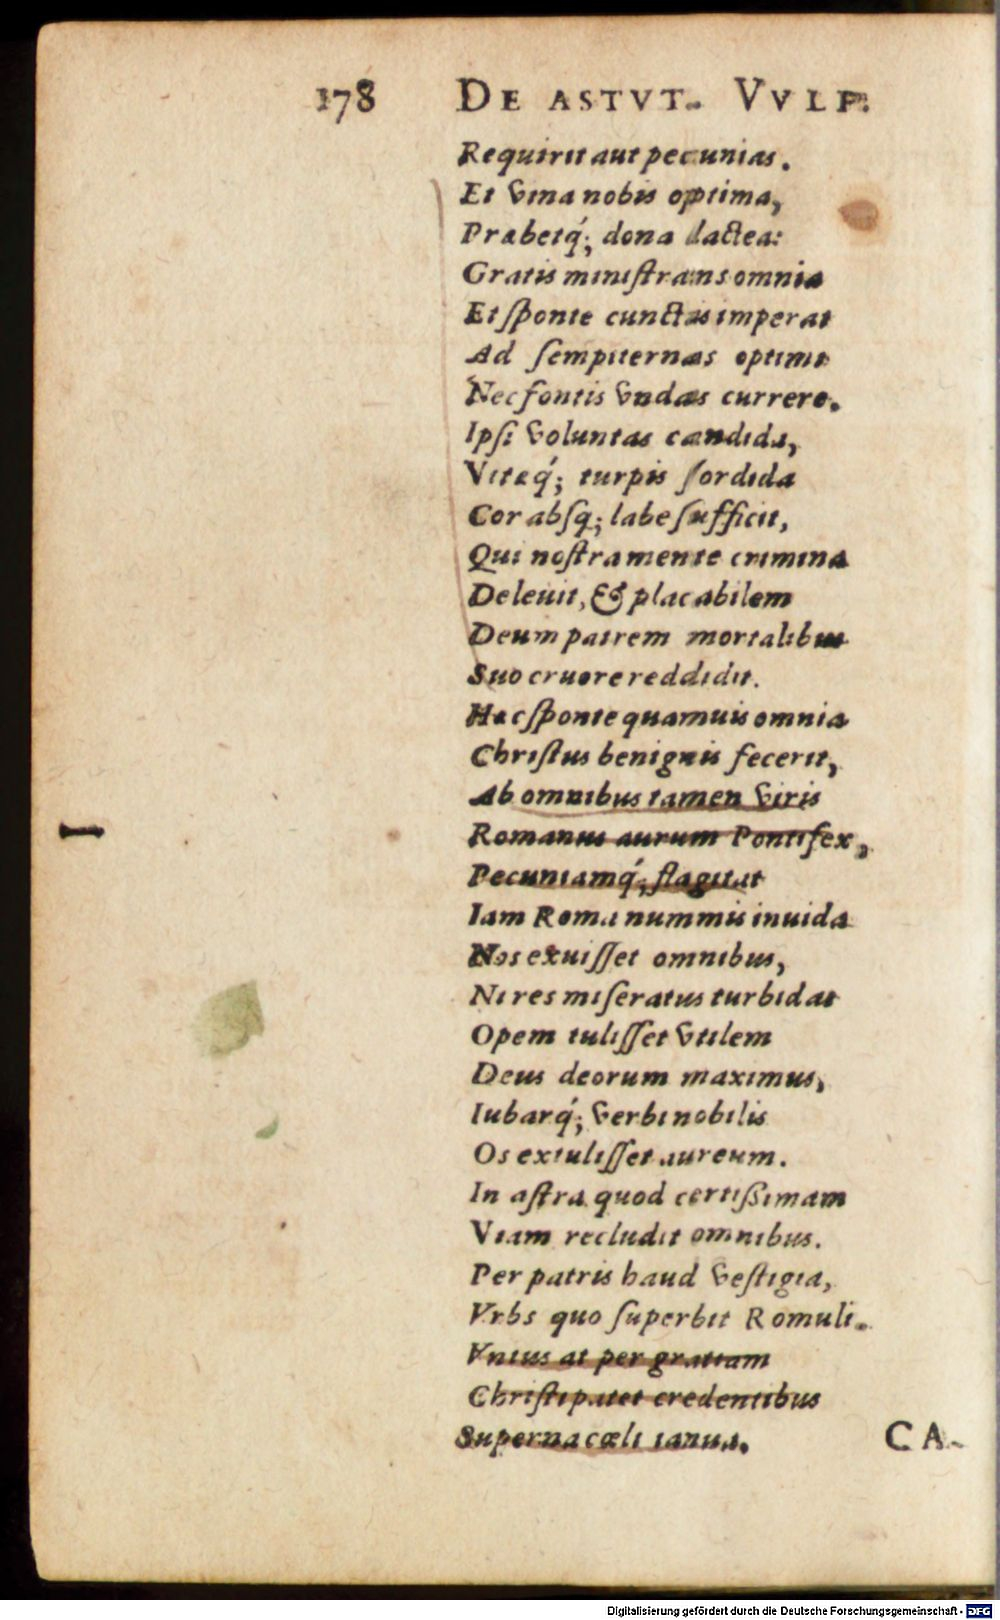 178 DE ASTVT. VVLP.
Requirit aut pecunias.
Et vina nobis optima,
Præbetq́; dona lactea:
Gratis ministrans omnia
Et sponte cunctas imperat
Ad sempiternas optimè
Nec fontis vndas currere.
Ipsi voluntas candida,
Vitæq́; turpis sordida
Cor absq; labe sufficit,
Qui nostra mente crimina
Deleuit, & placabilem
Deum patrem mortalibus
Suo cruore reddidit.
Hæc sponte quamuis omnia
Christus benignis fecerit,
Ab omnibus tamen viris
Romanus aurum Pontifex,
Pecuniamq́; flagitat
Iam Roma nummis inuida
Nos exuisset omnibus,
Ni res miseratus turbidas
Opem tulisset vtilem
Deus deorum maximus,
Iubarq́; verbi nobilis
Os extulisset aureum.
In astra quod certißimam
Viam recludit omnibus.
Per patris haud vestigia,
Vrbs quo superbit Romuli.
Vnius at per gratiam
Christi patet credentibus
Superna cœli ianua.
CA-
Digitalisierung gefördert durch die Deutsche Forschungsgemeinschaft - DFG